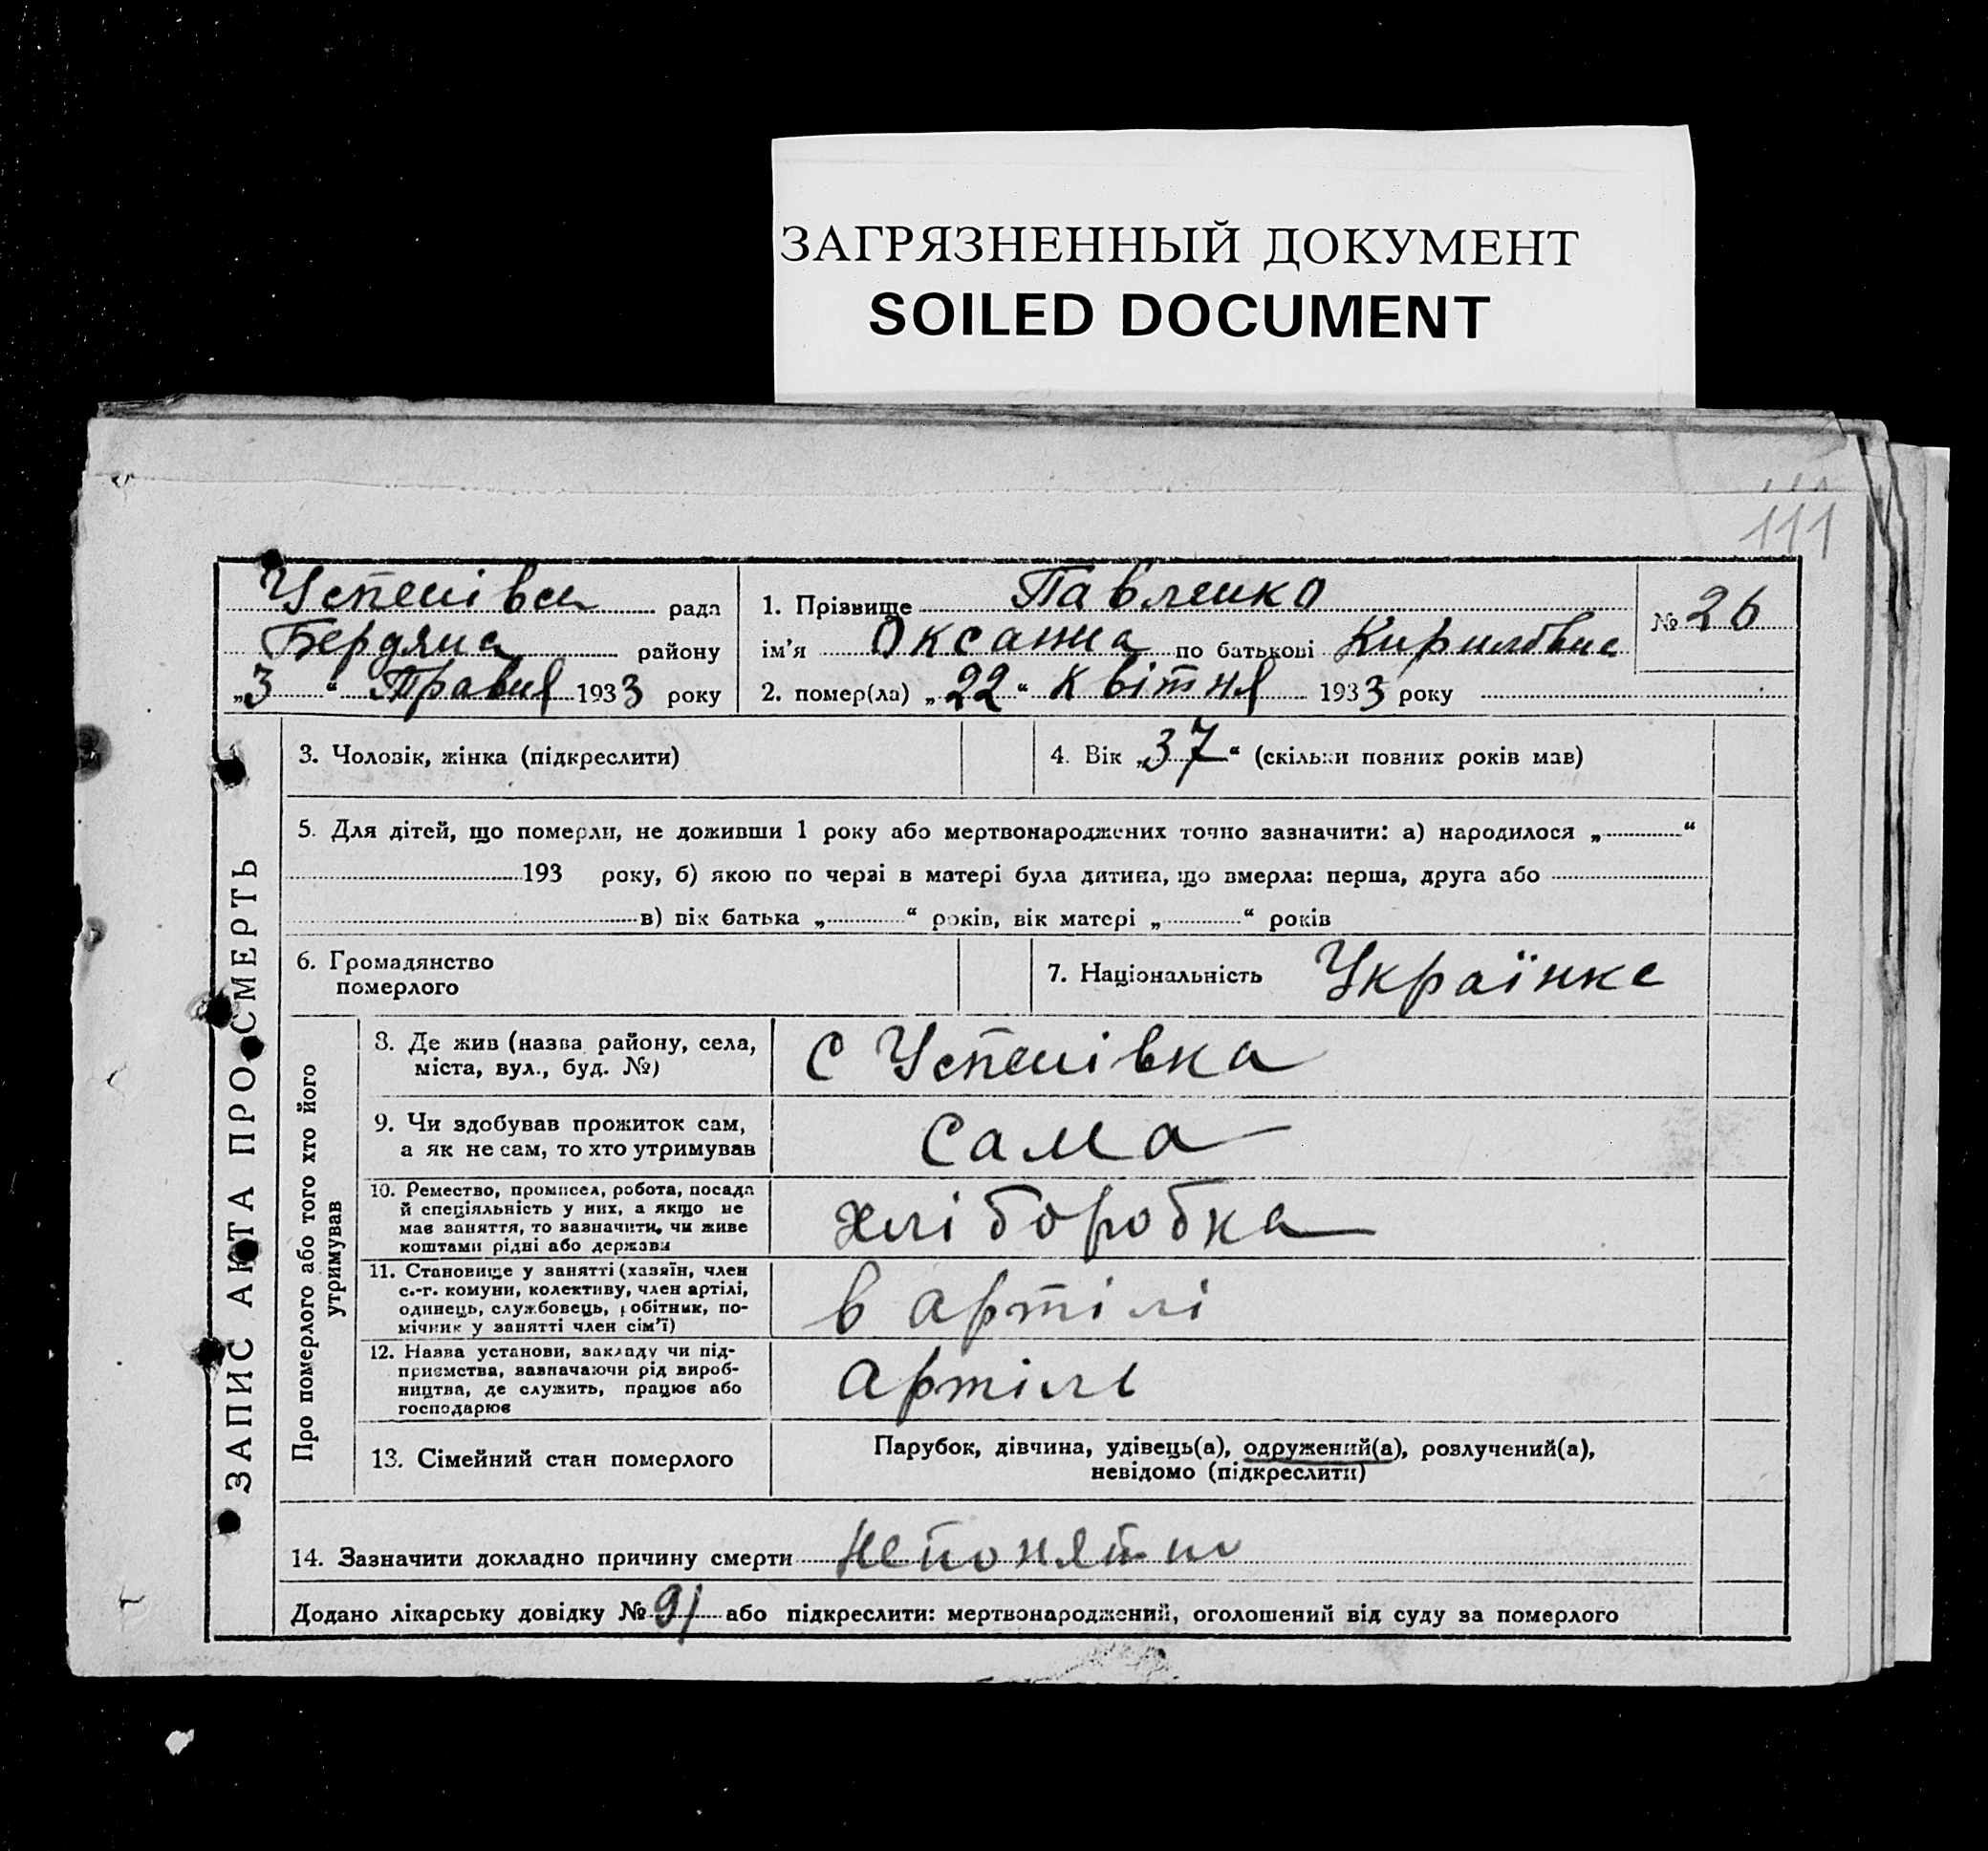 ЗАГРЯЗНЕННЫЙ ДОКУМЕНТ
SOILED DOCUMENT
111
Успенівська рада
Бердянс району
„3“ Травня 1933 року
1. Прізвище Павленко
ім’я Оксана по батькові Кирилівна
№ 26
2. помер(ла) „22“ квітня 1933 року
ЗАПИС АКТА ПРО СМЕРТЬ
3. Чоловік, жінка (підкреслити)
4. Вік „37“ (скільки повних років мав)
5. Для дітей, що померли, не доживши 1 року або мертвонароджених точно зазначити: а) народилося „ “
193 року, б) якою по черзі в матері була дитина, що вмерла: перша, друга або
в) вік батька „ “ років, вік матері „ “ років
6. Громадянство
померлого
7. Національність Українка
Про померлого або того хто його
утримував
8. Де жив (назва району, села,
міста, вул., буд. №)
с Успенівка
9. Чи здобував прожиток сам,
а як не сам, то хто утримував
сама
10. Ремество, промисел, робота, посада
й спеціяльність у них, а якщо не
має заняття, то зазначити, чи живе
коштами рідні або держави
хліборобка
11. Становище у занятті (хазяїн, член
с.-г. комуни, колективу, член артілі,
одинець, службовець, робітник, по-
мічник у занятті член сім’ї)
в артілі
12. Назва установи, закладу чи під-
приємства, зазначаючи рід вироб-
ництва, де служить, працює або
господарює
артіль
13. Сімейний стан померлого
Парубок, дівчина, удівець(а), одружений(а), розлучений(а),
невідомо (підкреслити)
14. Зазначити докладно причину смерти
Додано лікарську довідку № 91 або підкреслити: мертвонароджений, оголошений від суду за померлого